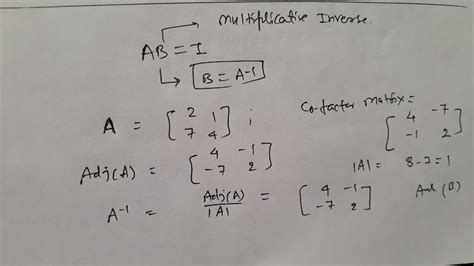 Multiplicative Inverse.
AB = I
B = A-1
A = [2 1
7 4] ;
Co-factor matrix =
[4 -7
-1 2]
Adj(A) = [4 -1
-7 2]
|A| = 8-7=1
A-1 = Adj(A)/|A| = [4 -1
-7 2]
Ans (B)